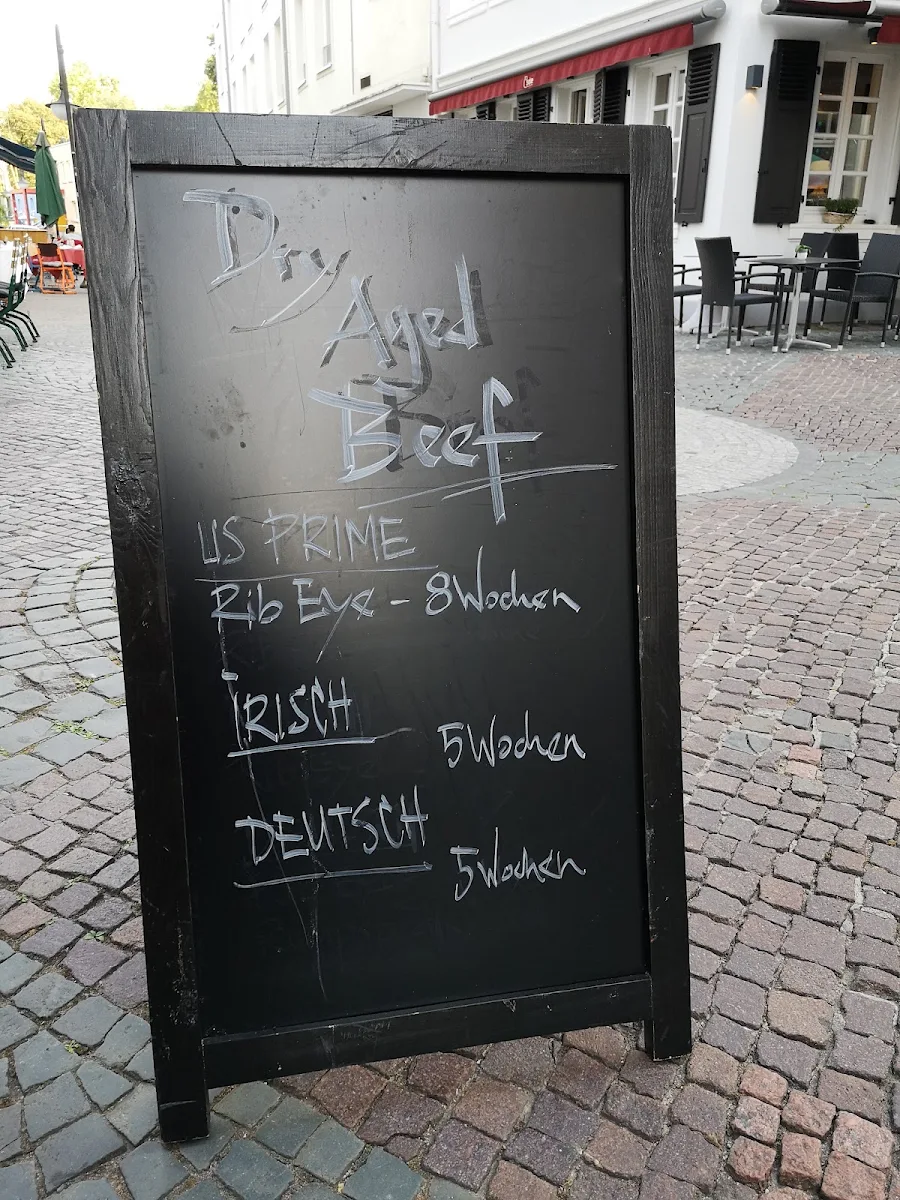 Dry
Aged
Beef
US PRIME
Rib Eye - 8 Wochen
IRISCH
5 Wochen
DEUTSCH
5 Wochen